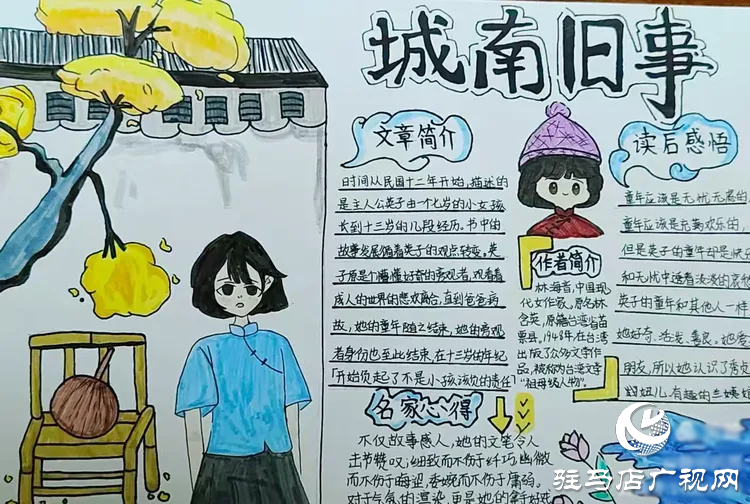 城南旧事
文章简介
时间从民国十二年开始,描述的
是主人公英子由一个七岁的小女孩
长到十三岁的几段经历。书中的
故事发展循着英子的观点转变。英
子原是个懵懂好奇的旁观者,观看着
成人的世界的悲欢离合,直到爸爸病
故,她的童年随之结束,她的旁观
者身份也至此结束,在十三岁的年纪
“开始负起了不是小孩该负的责任”
名家心得
不仅故事感人,她的文笔令人
击节赞叹,细致而不伤于纤巧,幽微
而不伤于晦涩,委婉而不伤于庸弱。
对于气氛的渲染,更是她的拿手好戏
作者简介
林海音,中国现
代女作家,原名林
含英,原籍台湾省苗
栗县。1948年,在台湾
出版了众多文学作
品,被称为台湾文学
“祖母级人物”。
读后感悟
童年应该是无忧无虑的
童年应该是充满欢乐的,
但是英子的童年却是快乐
和无忧中透着淡淡的哀愁
英子的童年和其他人一样
她好奇、活泼、善良,她爱
朋友,所以她认识了秀贞
妞儿、有趣的兰姨娘
驻马店广视网